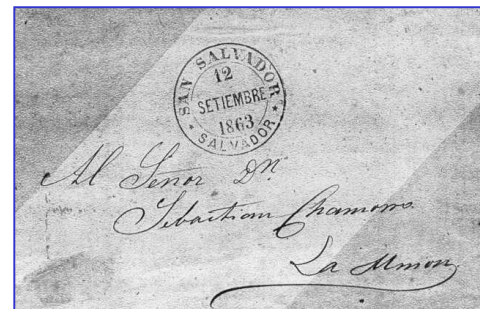 SAN SALVADOR
12
SETIEMBRE
1863
SALVADOR
Al Senor Dn
Sebastian Chamorro
La Union